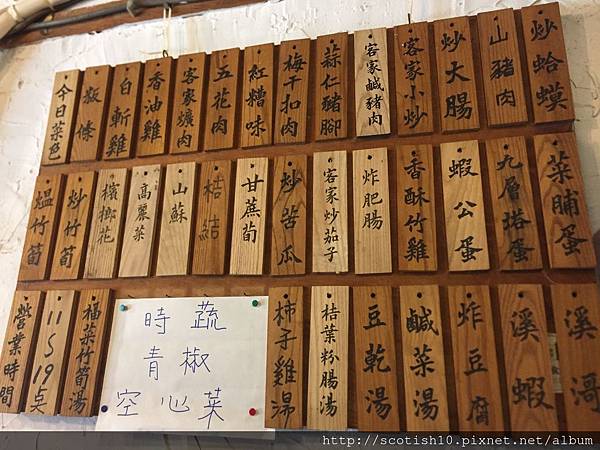 今日菜色
粄條
白斬雞
香油雞
客家爌肉
五花肉
紅糟味
梅干扣肉
蒜仁豬腳
客家鹹豬肉
客家小炒
炒大腸
山豬肉
炒蛤蟆
熅竹筍
炒竹筍
檳榔花
高麗菜
山蘇
桔結
甘蔗荀
炒苦瓜
客家炒茄子
炸肥腸
香酥竹雞
蝦公蛋
九層塔蛋
菜脯蛋
營業時間
11S19点
福菜竹筍湯
時蔬
青椒
空心菜
柿子雞湯
桔葉粉腸湯
豆乾湯
鹹菜湯
炸豆腐
溪蝦
溪哥
http://scotish10.pixnet.net/album